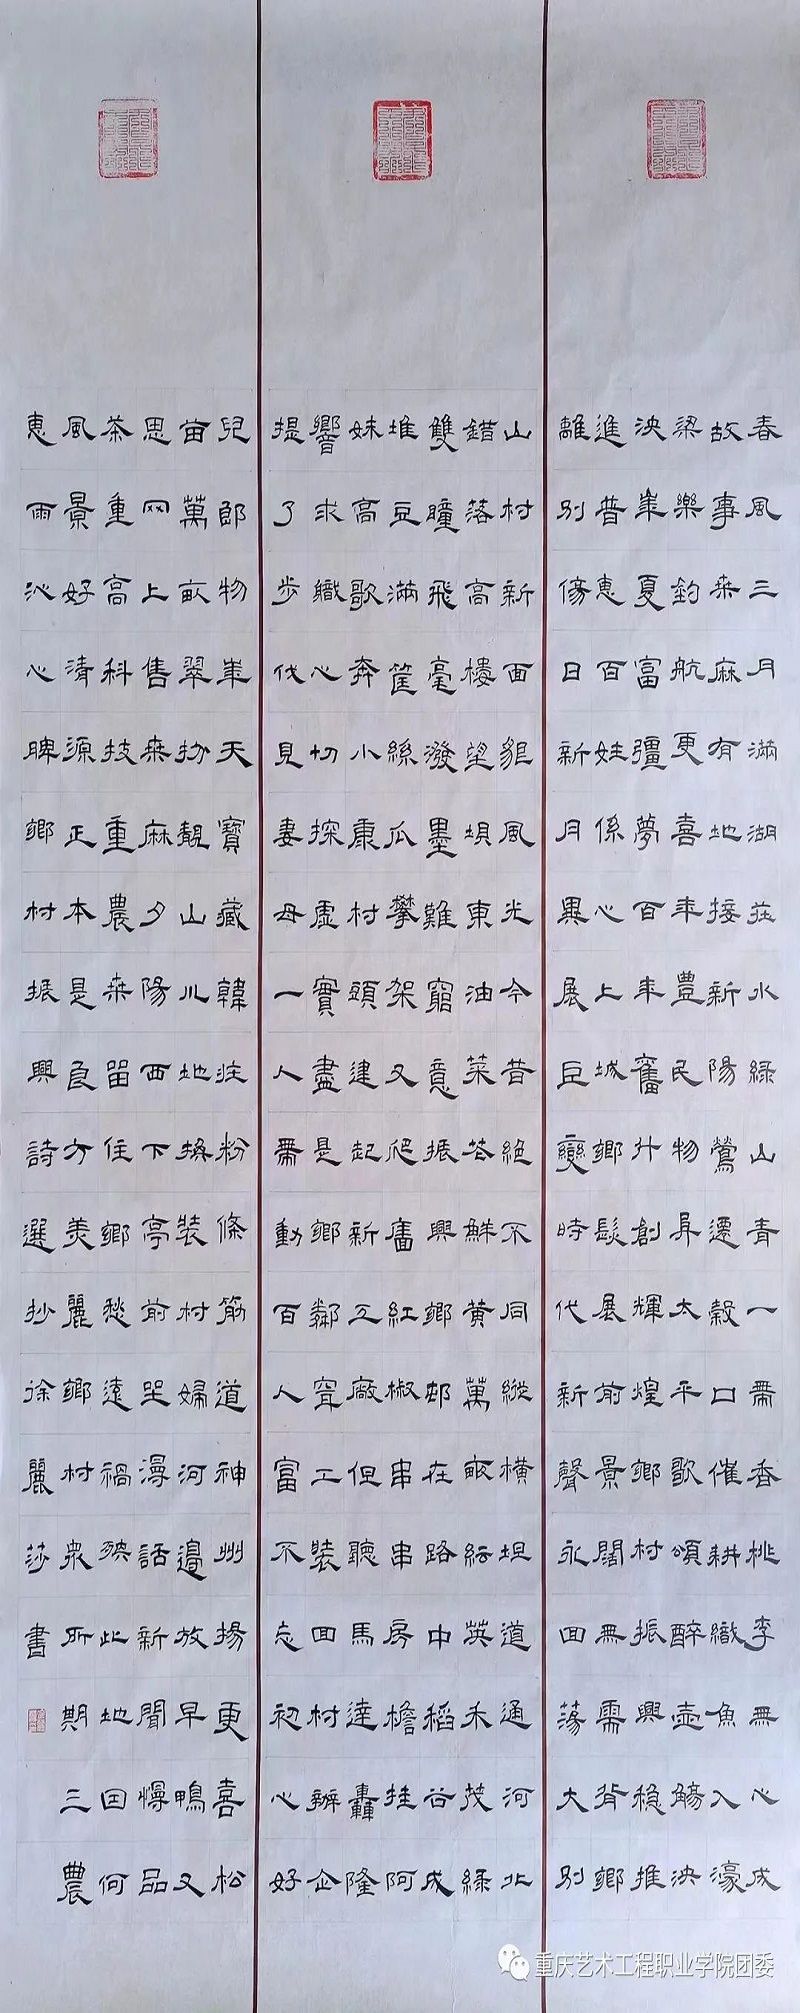 春風三月滿湖莊水綠山青一帶香桃李無心成
故事來麻有地接新陽鶯遷穀口催耕織魚入濠
梁樂鈞航更喜年豐民物昇太平歌頌醉壺觴泱
泱華夏富彊夢百年舊廾創輝煌鄉村振興穩推
進普惠百姓係心上城鄉髮展前景闊無需背鄉
離別傍日新月異展巨變時代新聲永回蕩大別
山村新面貌風光今昔絕不同縱橫坦道通河北
錯落高樓望垻東油菜花鮮黃萬畝紜英禾茂綠
雙瞳飛毫潑墨難窮意振興鄉邨在路中稻谷成
堆豆滿筐絲瓜攀架又爬舊紅椒串串房檐挂阿
妹高歌奔小康村頭建起新工廠但聽馬達轟隆
響求職心切探虛實盡是鄉鄰工裝回村辦企
提了步伐見妻母一人帶動百人富不忘初心好
兒郎物華天寶藏韓莊粉條筋道神州揚更喜松
苗萬畝翠扮靚山川地換裝村婦河邊放早鴨又
思网上售來麻夕陽西下亭前坐漫話新聞慢品
茶重高科技重農桑留住鄉愁遠禍殃此地回何
風景好清源正本是良方美麗鄉村眾所期三農
惠雨沁心脾鄉村振興詩選抄徐麗莎書
重庆艺术工程职业学院团委